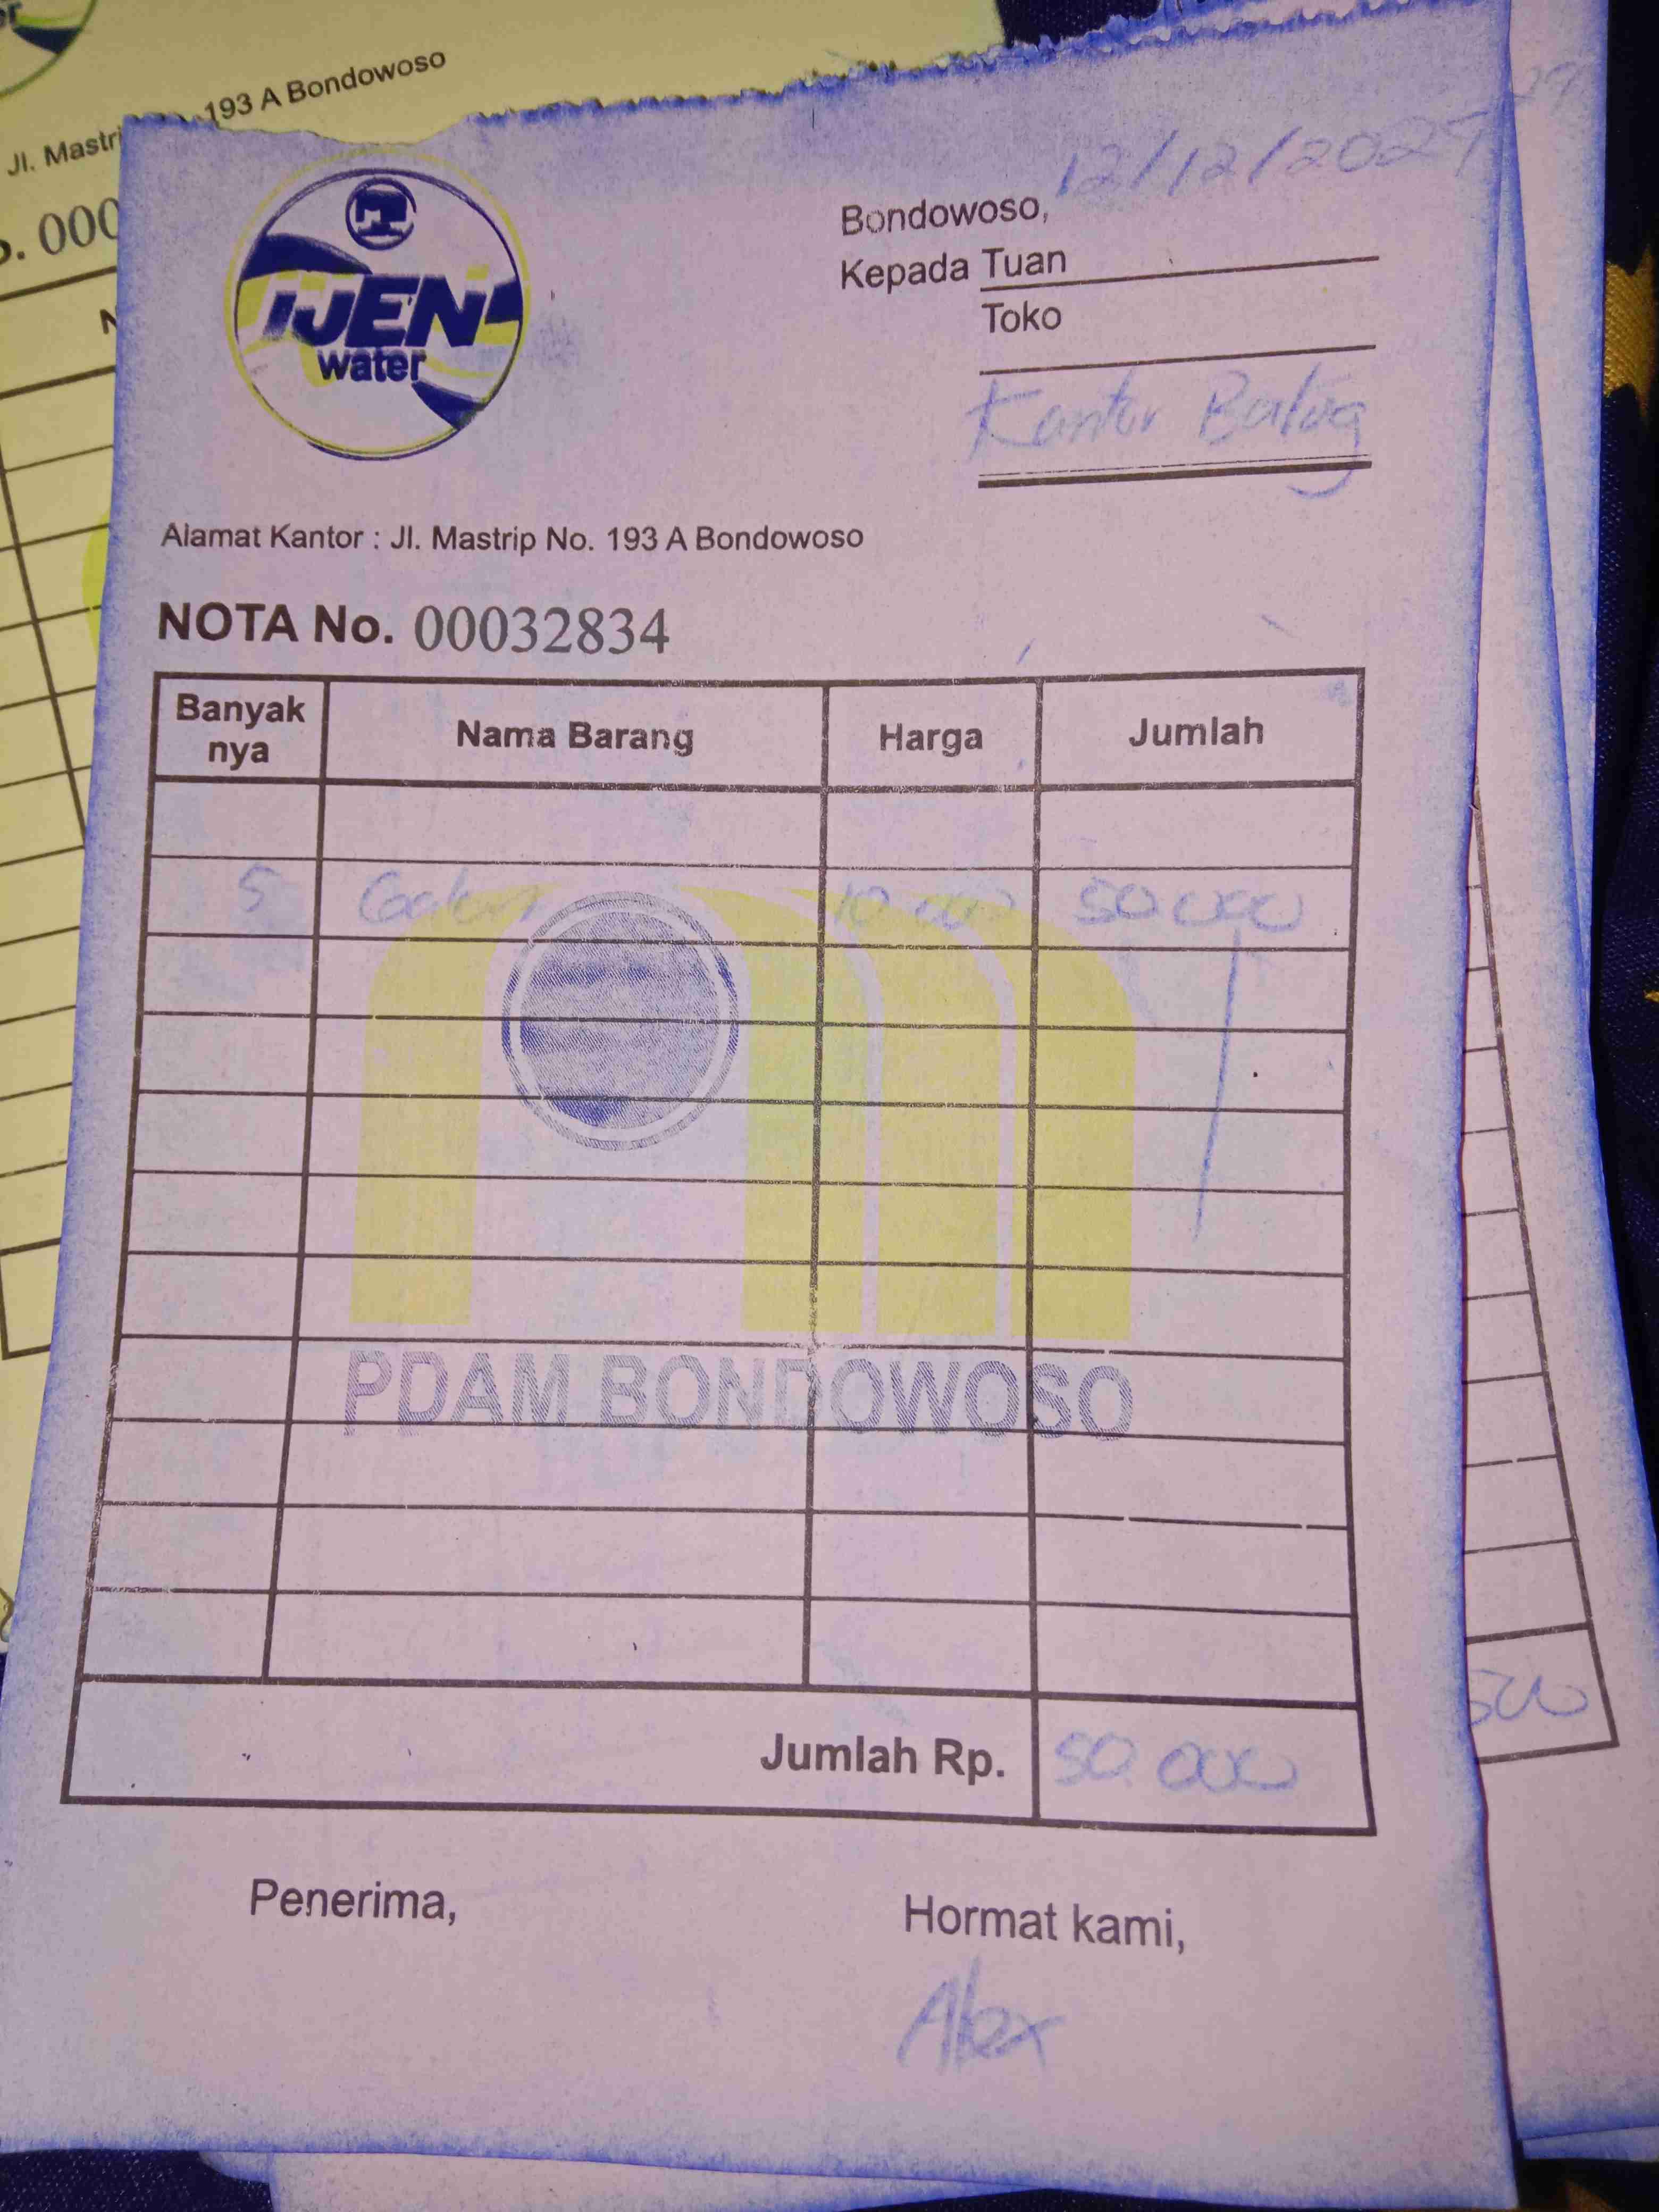 193 A Bondowoso
Jl. Mastri
000
IJEN
water
Bondowoso, 12/12/2024
Kepada Tuan
Toko
Kantor Bulog
Alamat Kantor : Jl. Mastrip No. 193 A Bondowoso
NOTA No. 00032834
Banyak nya Nama Barang Harga Jumlah
5 Galon 10.000 50.000
PDAM BONDOWOSO
Jumlah Rp. 50.000
500
Penerima, Hormat kami,
Alex